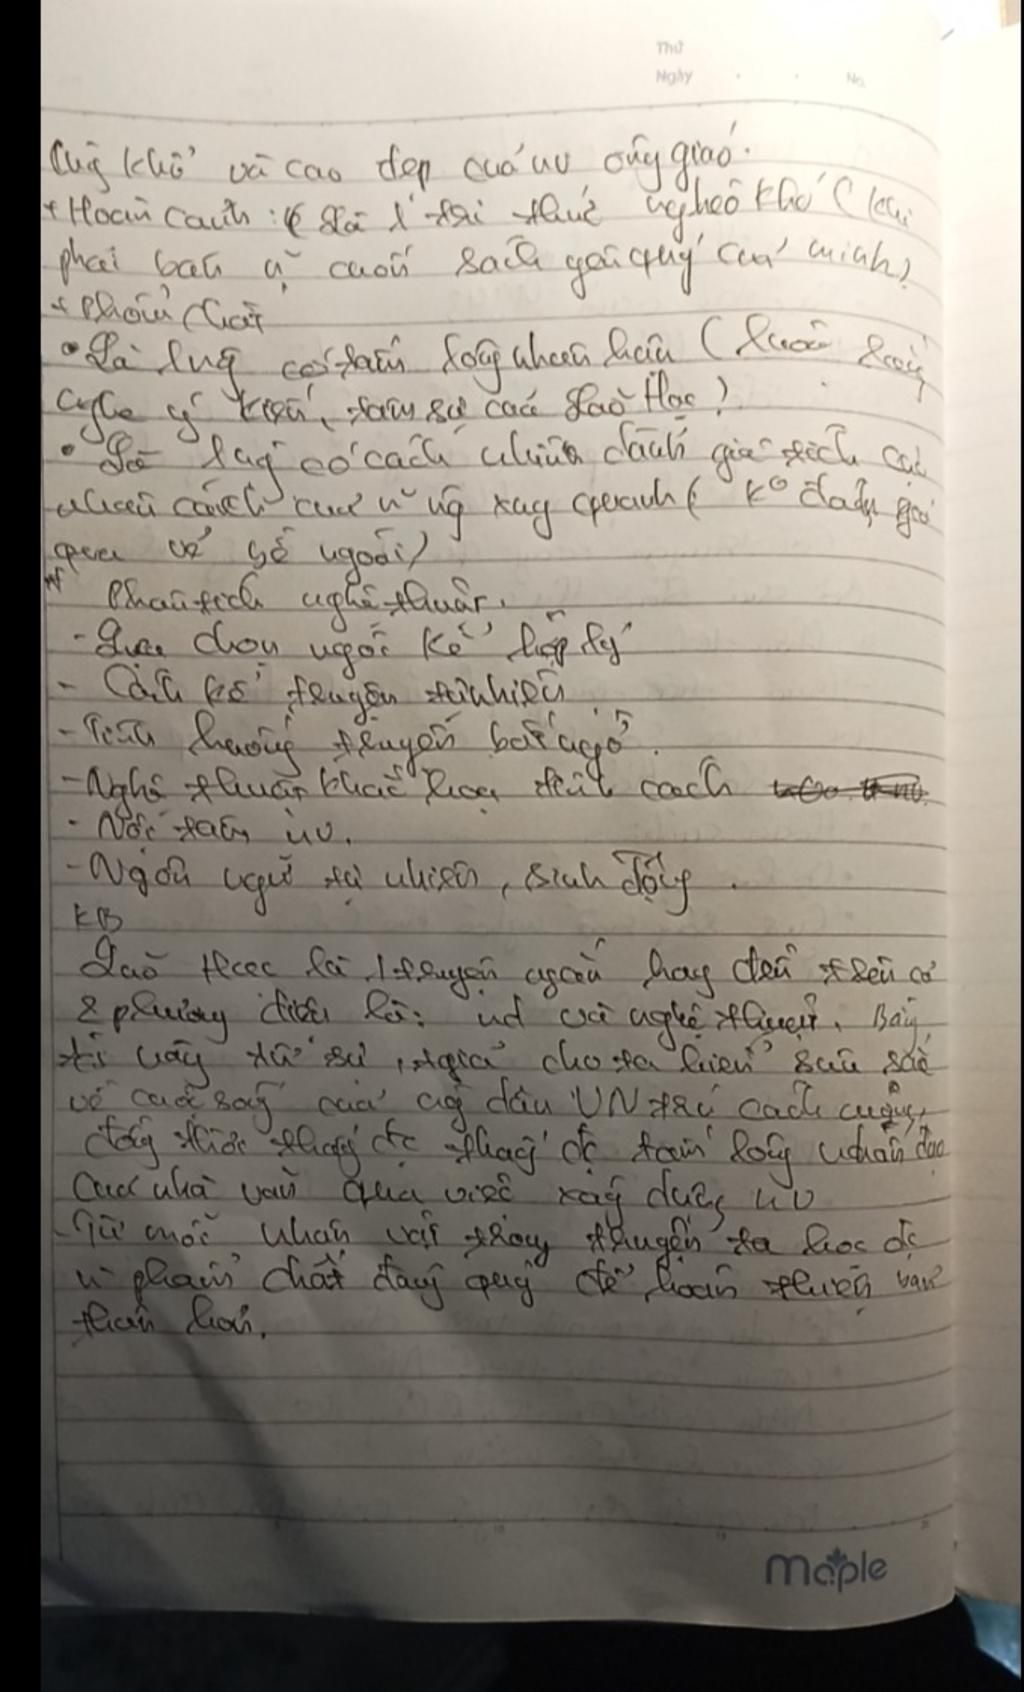 Thứ
Ngày No.
khổ và cao đẹp của nv ông giáo.
+ Hoàn cảnh: là 1 tri thức nghèo khổ (khi
phải bán đi cuốn sách yêu quý của mình)
+ Phẩm chất
• Là có tấm lòng nhân hậu (luôn lắng
nghe ý kiến, tâm sự của Lão Hạc)
• Là có cách nhìn đánh giá tích cực
nhân cách của ~ ng xung quanh (ko đánh giá
qua vẻ bề ngoài)
Phân tích nghệ thuật.
- Lựa chọn ngôi kể hợp lý
- Cách kể truyện tự nhiên
- Tình huống truyện bất ngờ.
- Nghệ thuật khắc họa tính cách
- Nội tâm nv.
- Ngôn ngữ tự nhiên, sinh động.
KB
Lão Hạc là 1 truyện ngắn hay trên cả
2 phương diện là: nd và nghệ thuật. Bằng
tự sự, tgiả cho ta hiểu sâu sắc
về cuộc sống của ng dân VN trc cách mạng,
đồng thời thấy đc thấy đc tấm lòng nhân đạo
của nhà văn qua việc xây dựng nv
- Từ mỗi nhân vật trong truyện ta học đc
~ phẩm chất đáng quý để hoàn thiện bản
thân hơn.
maple